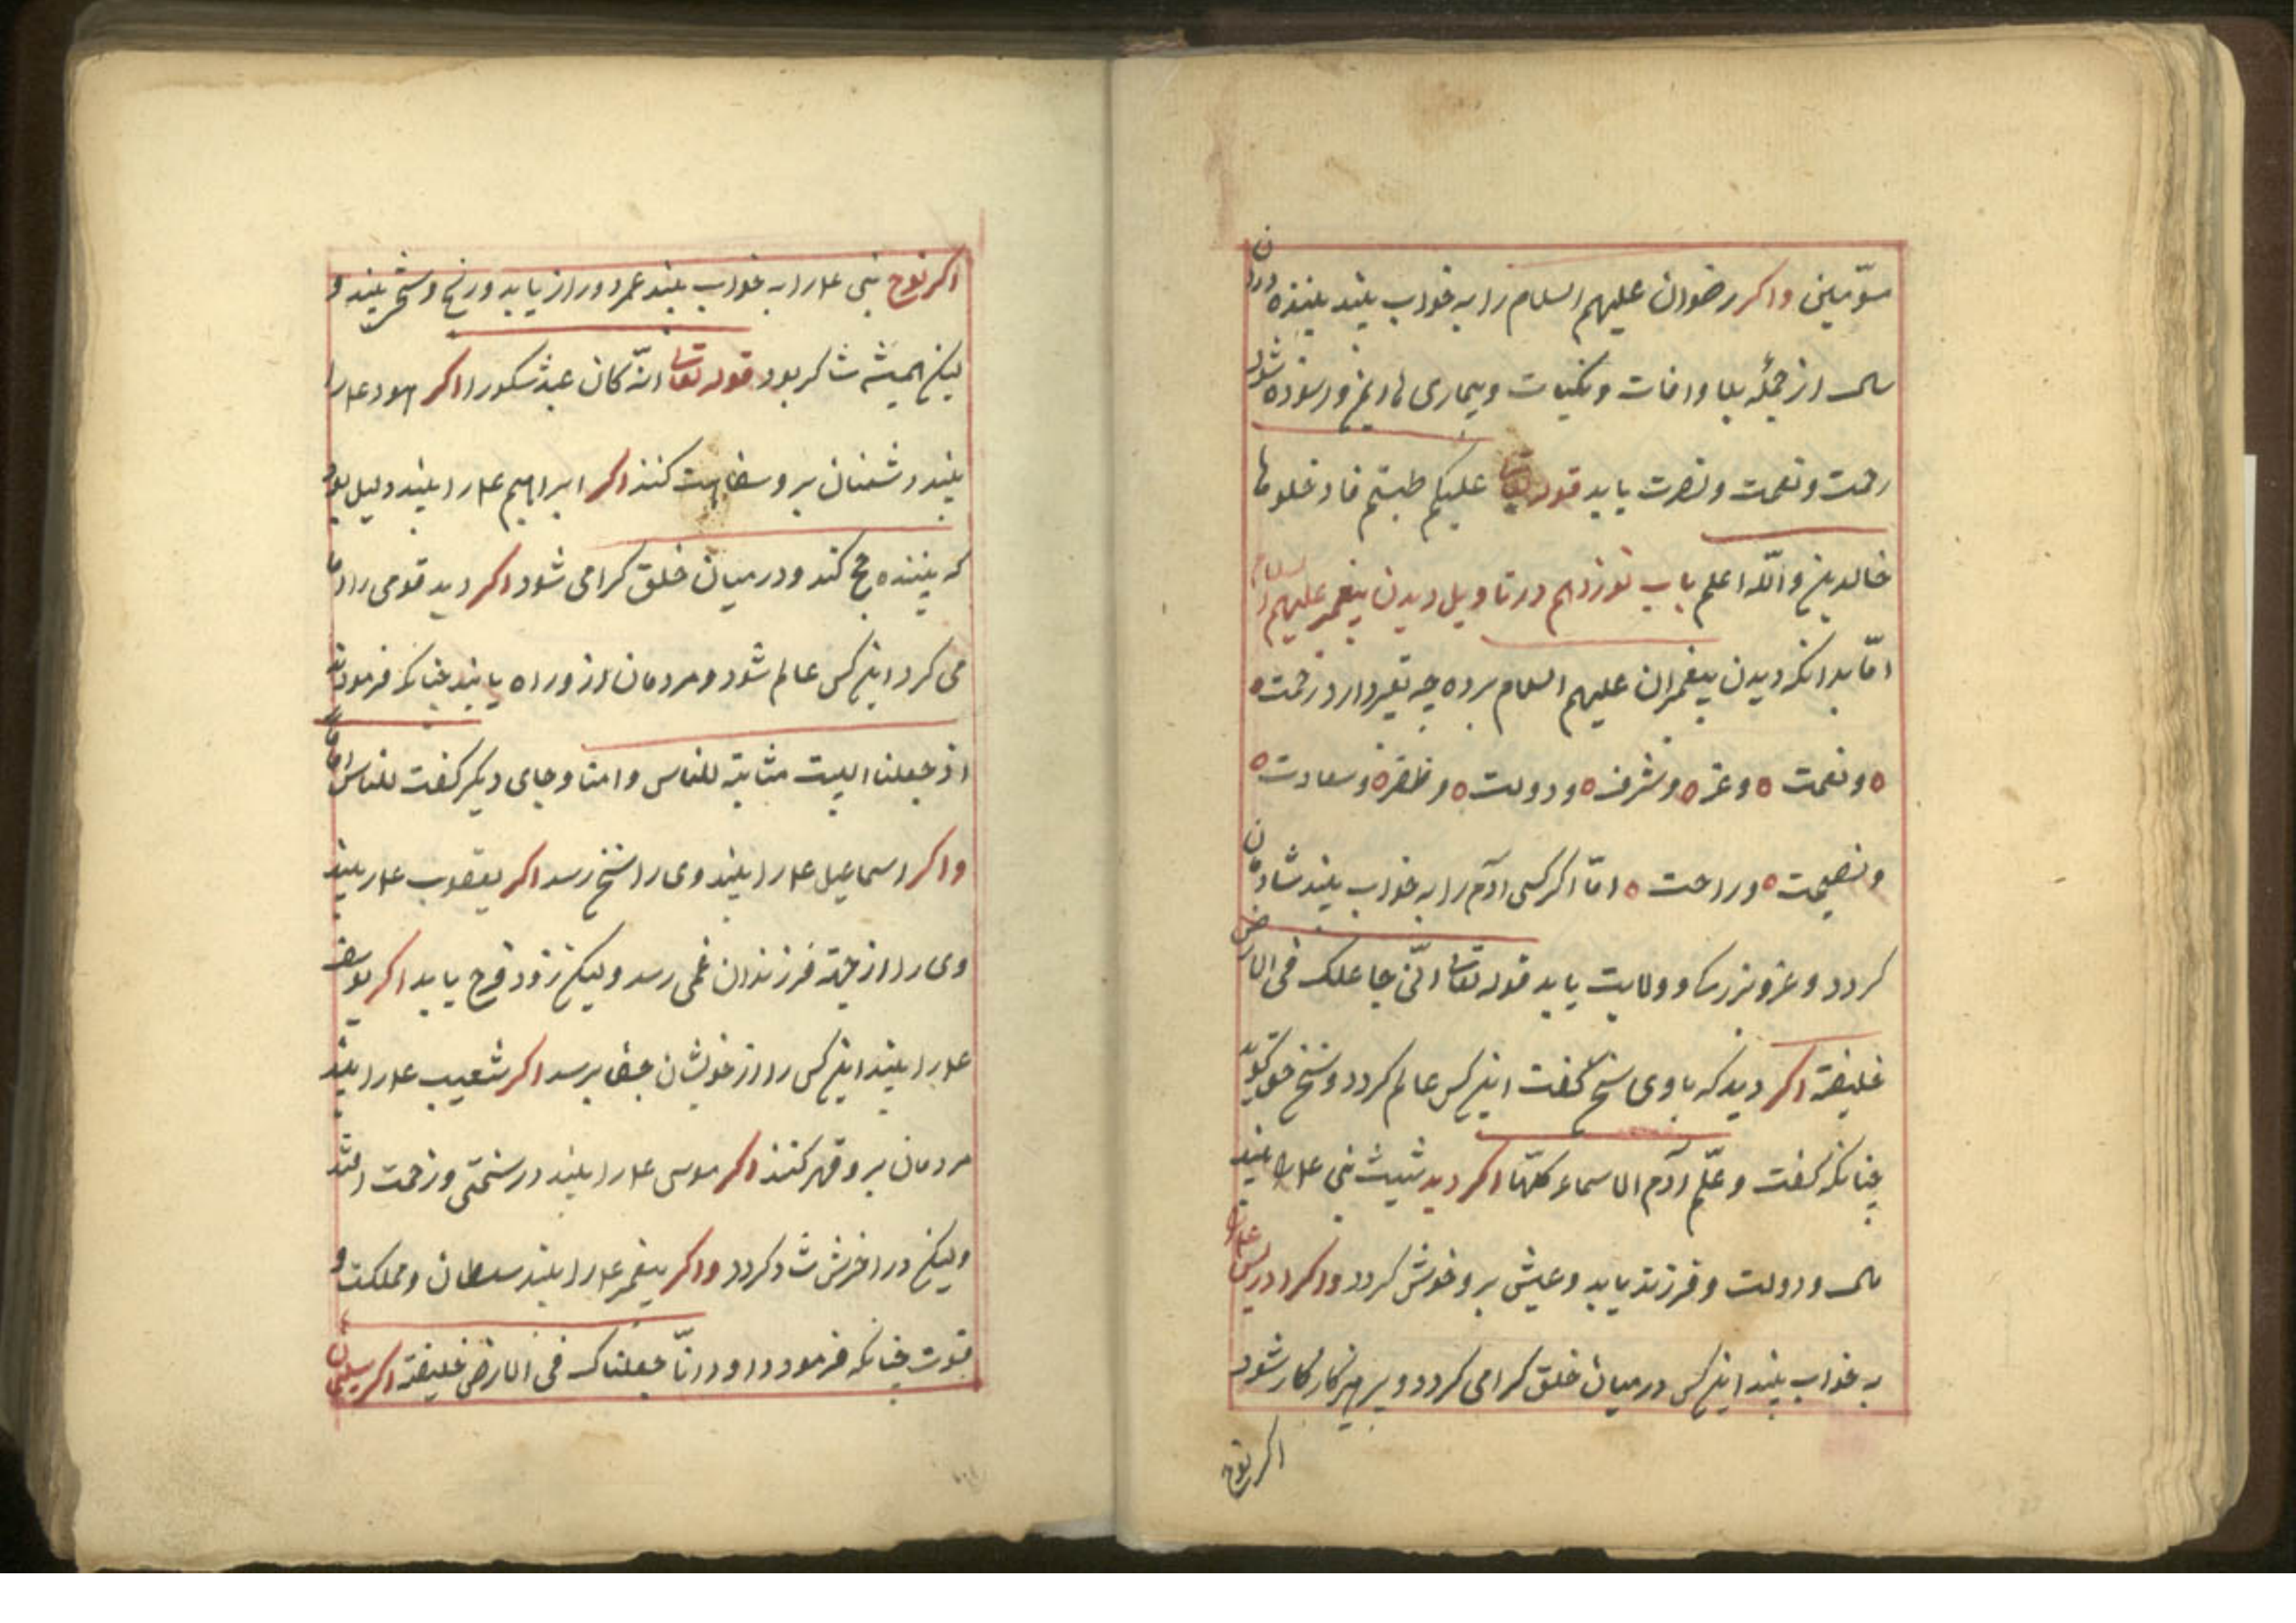 سوّمین واکر رضوان علیهم السلام را به خواب بیند بیننده دران
سال از جمله بلا وافات ونکبات وبیماری ها ایمن واسوده شود
رحمت ونعمت ونصرت یابد قوله تعا علیکم طبتم فادخلوها
خالدین والله اعلم باب نوزدهم در تاویل دیدن پیغمبر علیهم السلام
امّا بدانکه دیدن پیغمبران علیهم السلام برده چه تعبیر دارد رحمت
ونعمت وعز وشرف ودولت وظفر وسعادت
ونصیحت وراحت امّا اکر کسی آدم را به خواب بیند شادمان
کردد وعز وبزرکی وولایت یابد قوله تعا انّی جاعلک فی الارض
خلیفة اکر دید که باوی سخن کفت این کس عالم کردد وسخن حق کوید
چنانکه کفت وعلّم آدم الاسماء کلّها اکر دید شیث نبی علیه را بیند
مال ودولت وفرزند یابد وعیش برو خوش کردد واکر ادریس علیه را
به خواب بیند این کس در میان خلق کرامی کردد وپرهیزکار کار شود
اکر نوح
اکر نوح نبی علیه را به خواب بیند عمر دوراز یابد ورنج وسختی بیند و
لیکن همیشه شاکر بود قوله تعا انّه کان عبد شکورا اکر هود علیه را
بیند دشمنان برو سفاهت کنند اکر ابراهیم علیه را بیند دلیل بود
که بیننده حج کند ودر میان خلق کرامی شود اکر دید قومی را اما
می کرد این کس عالم شود ومردمان ازو راه یابند چنانکه فرمود
اذ جعلنا البیت مثابة للناس وامنا وجای دیکر کفت للناس اماما
واکر اسماعیل علیه را بیند وی را سخن رسد اکر یعقوب علیه را بیند
وی را از جهة فرزندان غمی رسد ولیکن زود فرح یابد اکر یوسف
علیه را بیند این کس را از خویشان جفا برسد اکر شعیب علیه را بیند
مردمان برو قهر کنند اکر موسی علیه را بیند در سختی وزحمت افتد
ولیکن در اخرش شاد کردد واکر پیغمبر علیه را بیند سلطان ومملکت و
قوت چنانکه فرمود داود انّا جعلناک فی الارض خلیفة اکر سلیمان